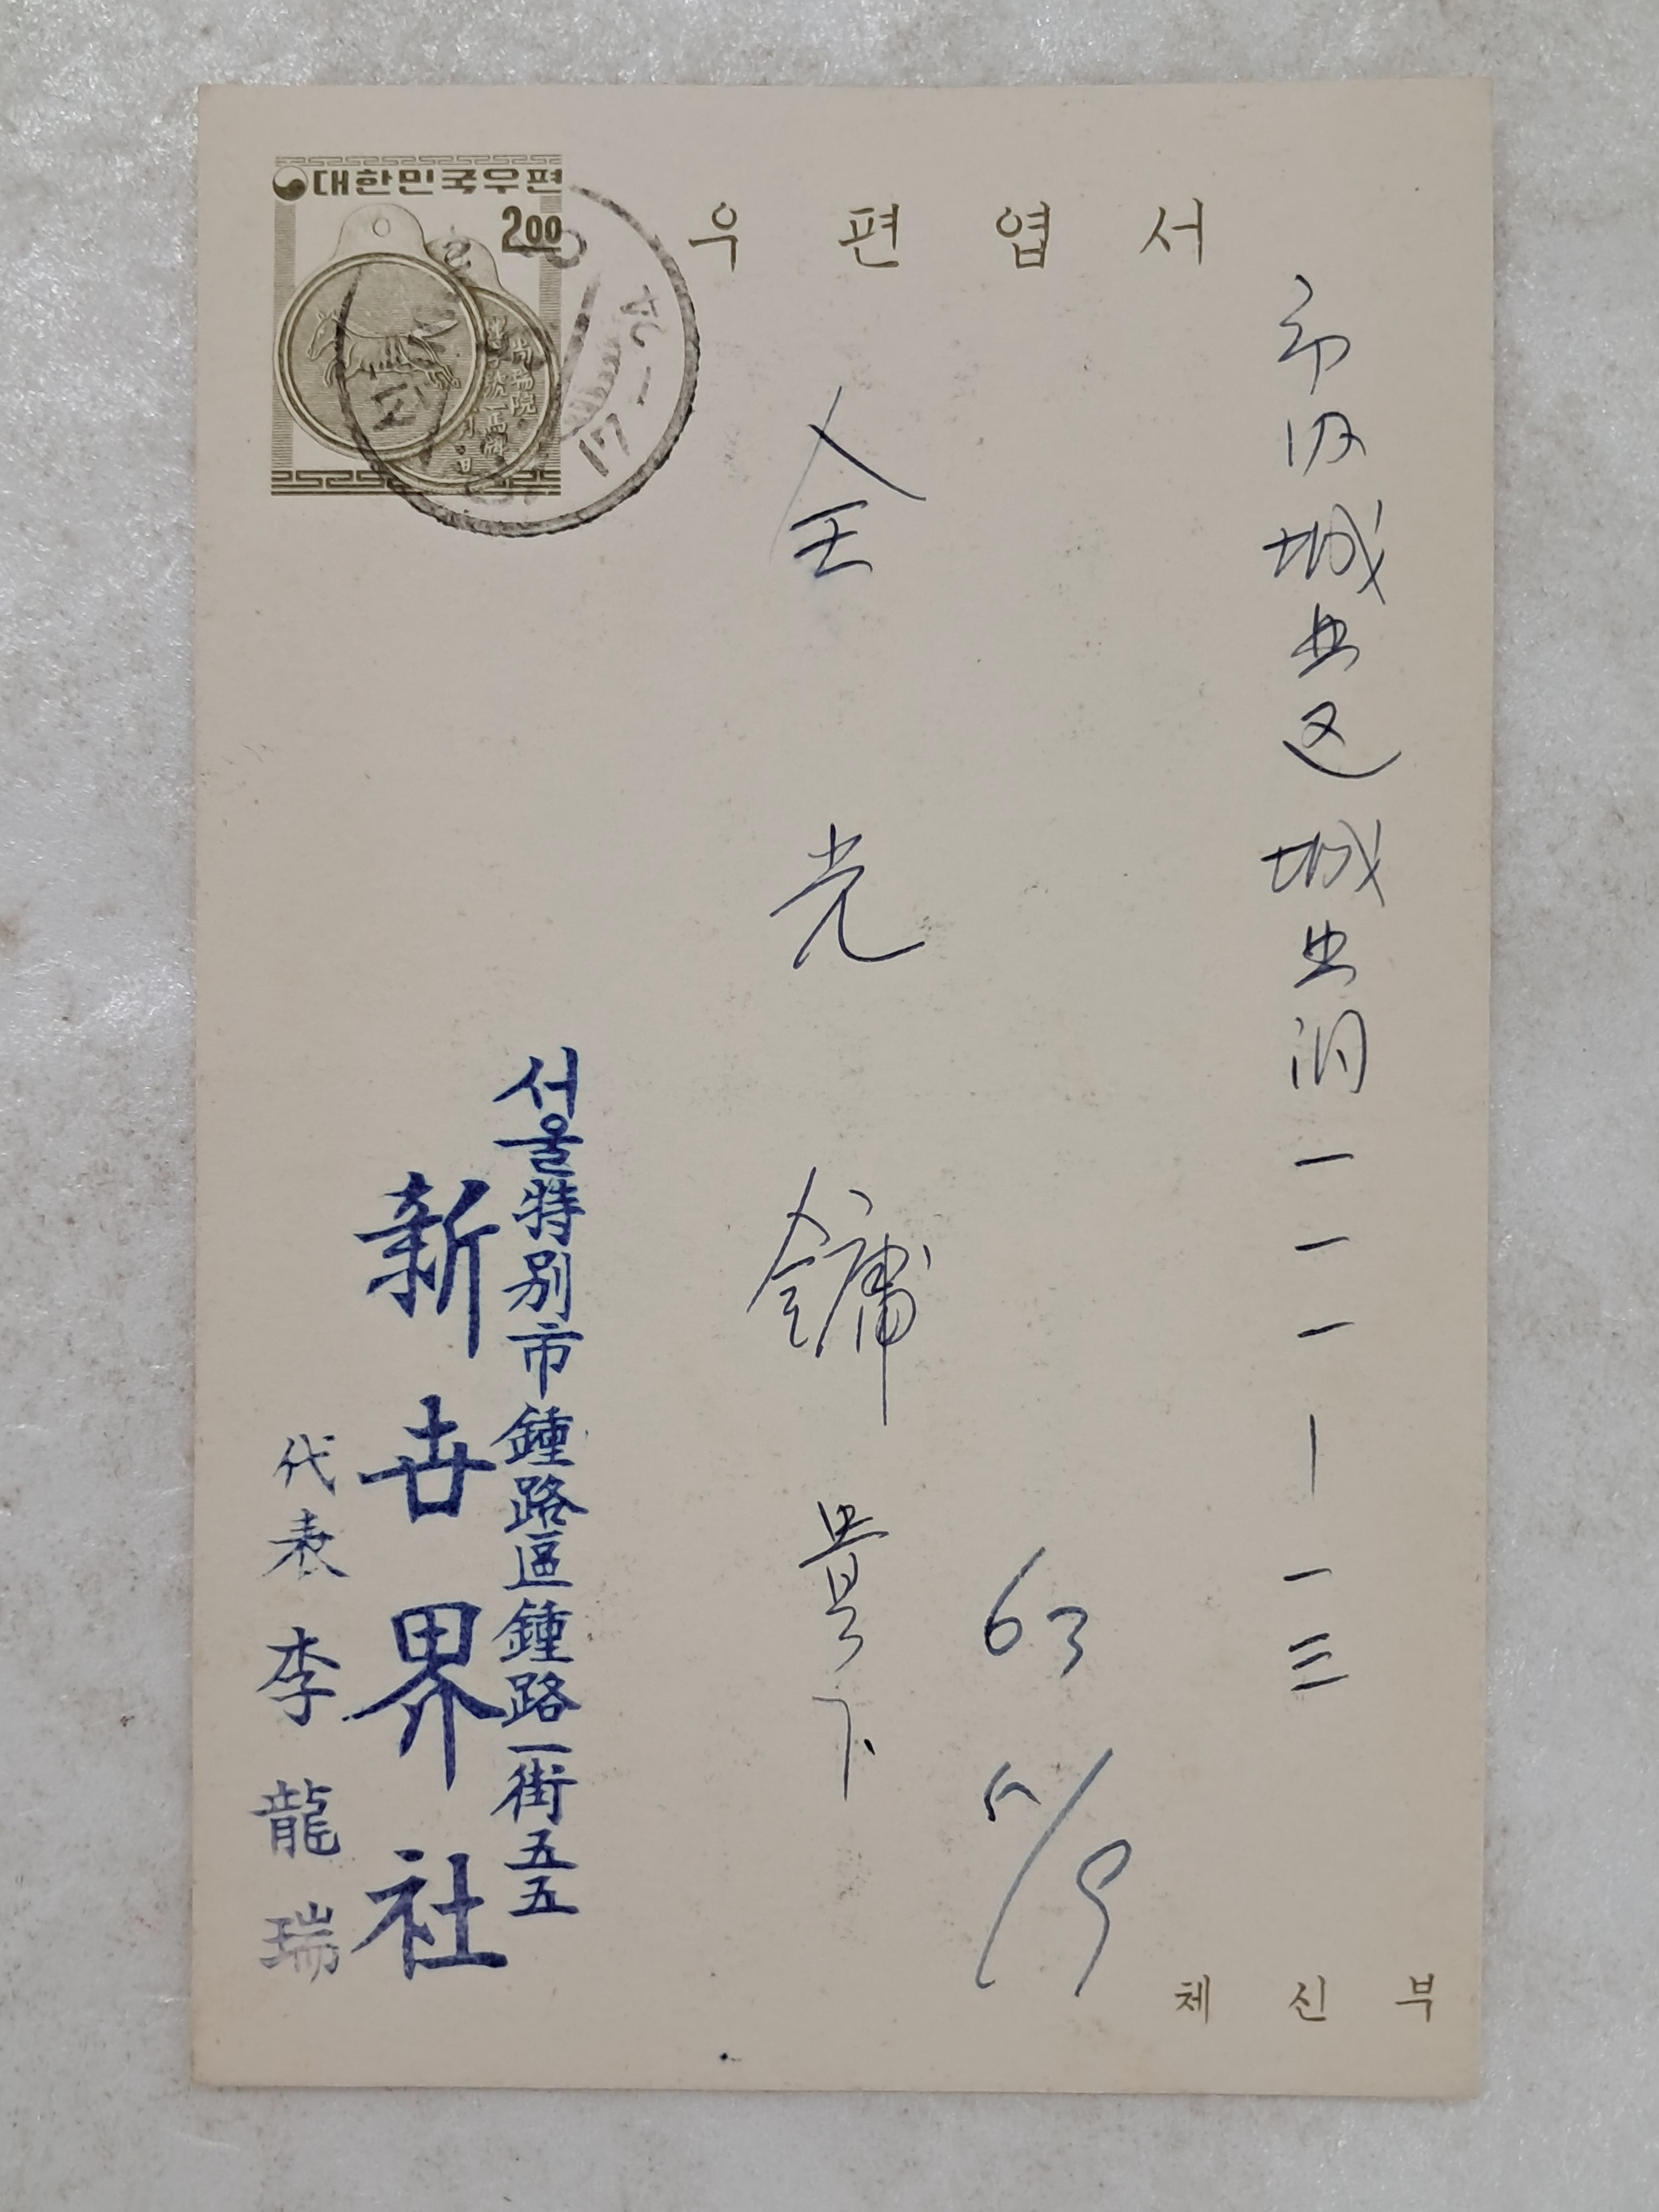 대한민국우편
2.00
우편엽서
市内城北区城北洞一一一ー一三
全光鏞 貴下
63
5/9
서울特別市鍾路區鍾路一街五五
新世界社
代表 李龍瑞
체신부
尙瑞院
17